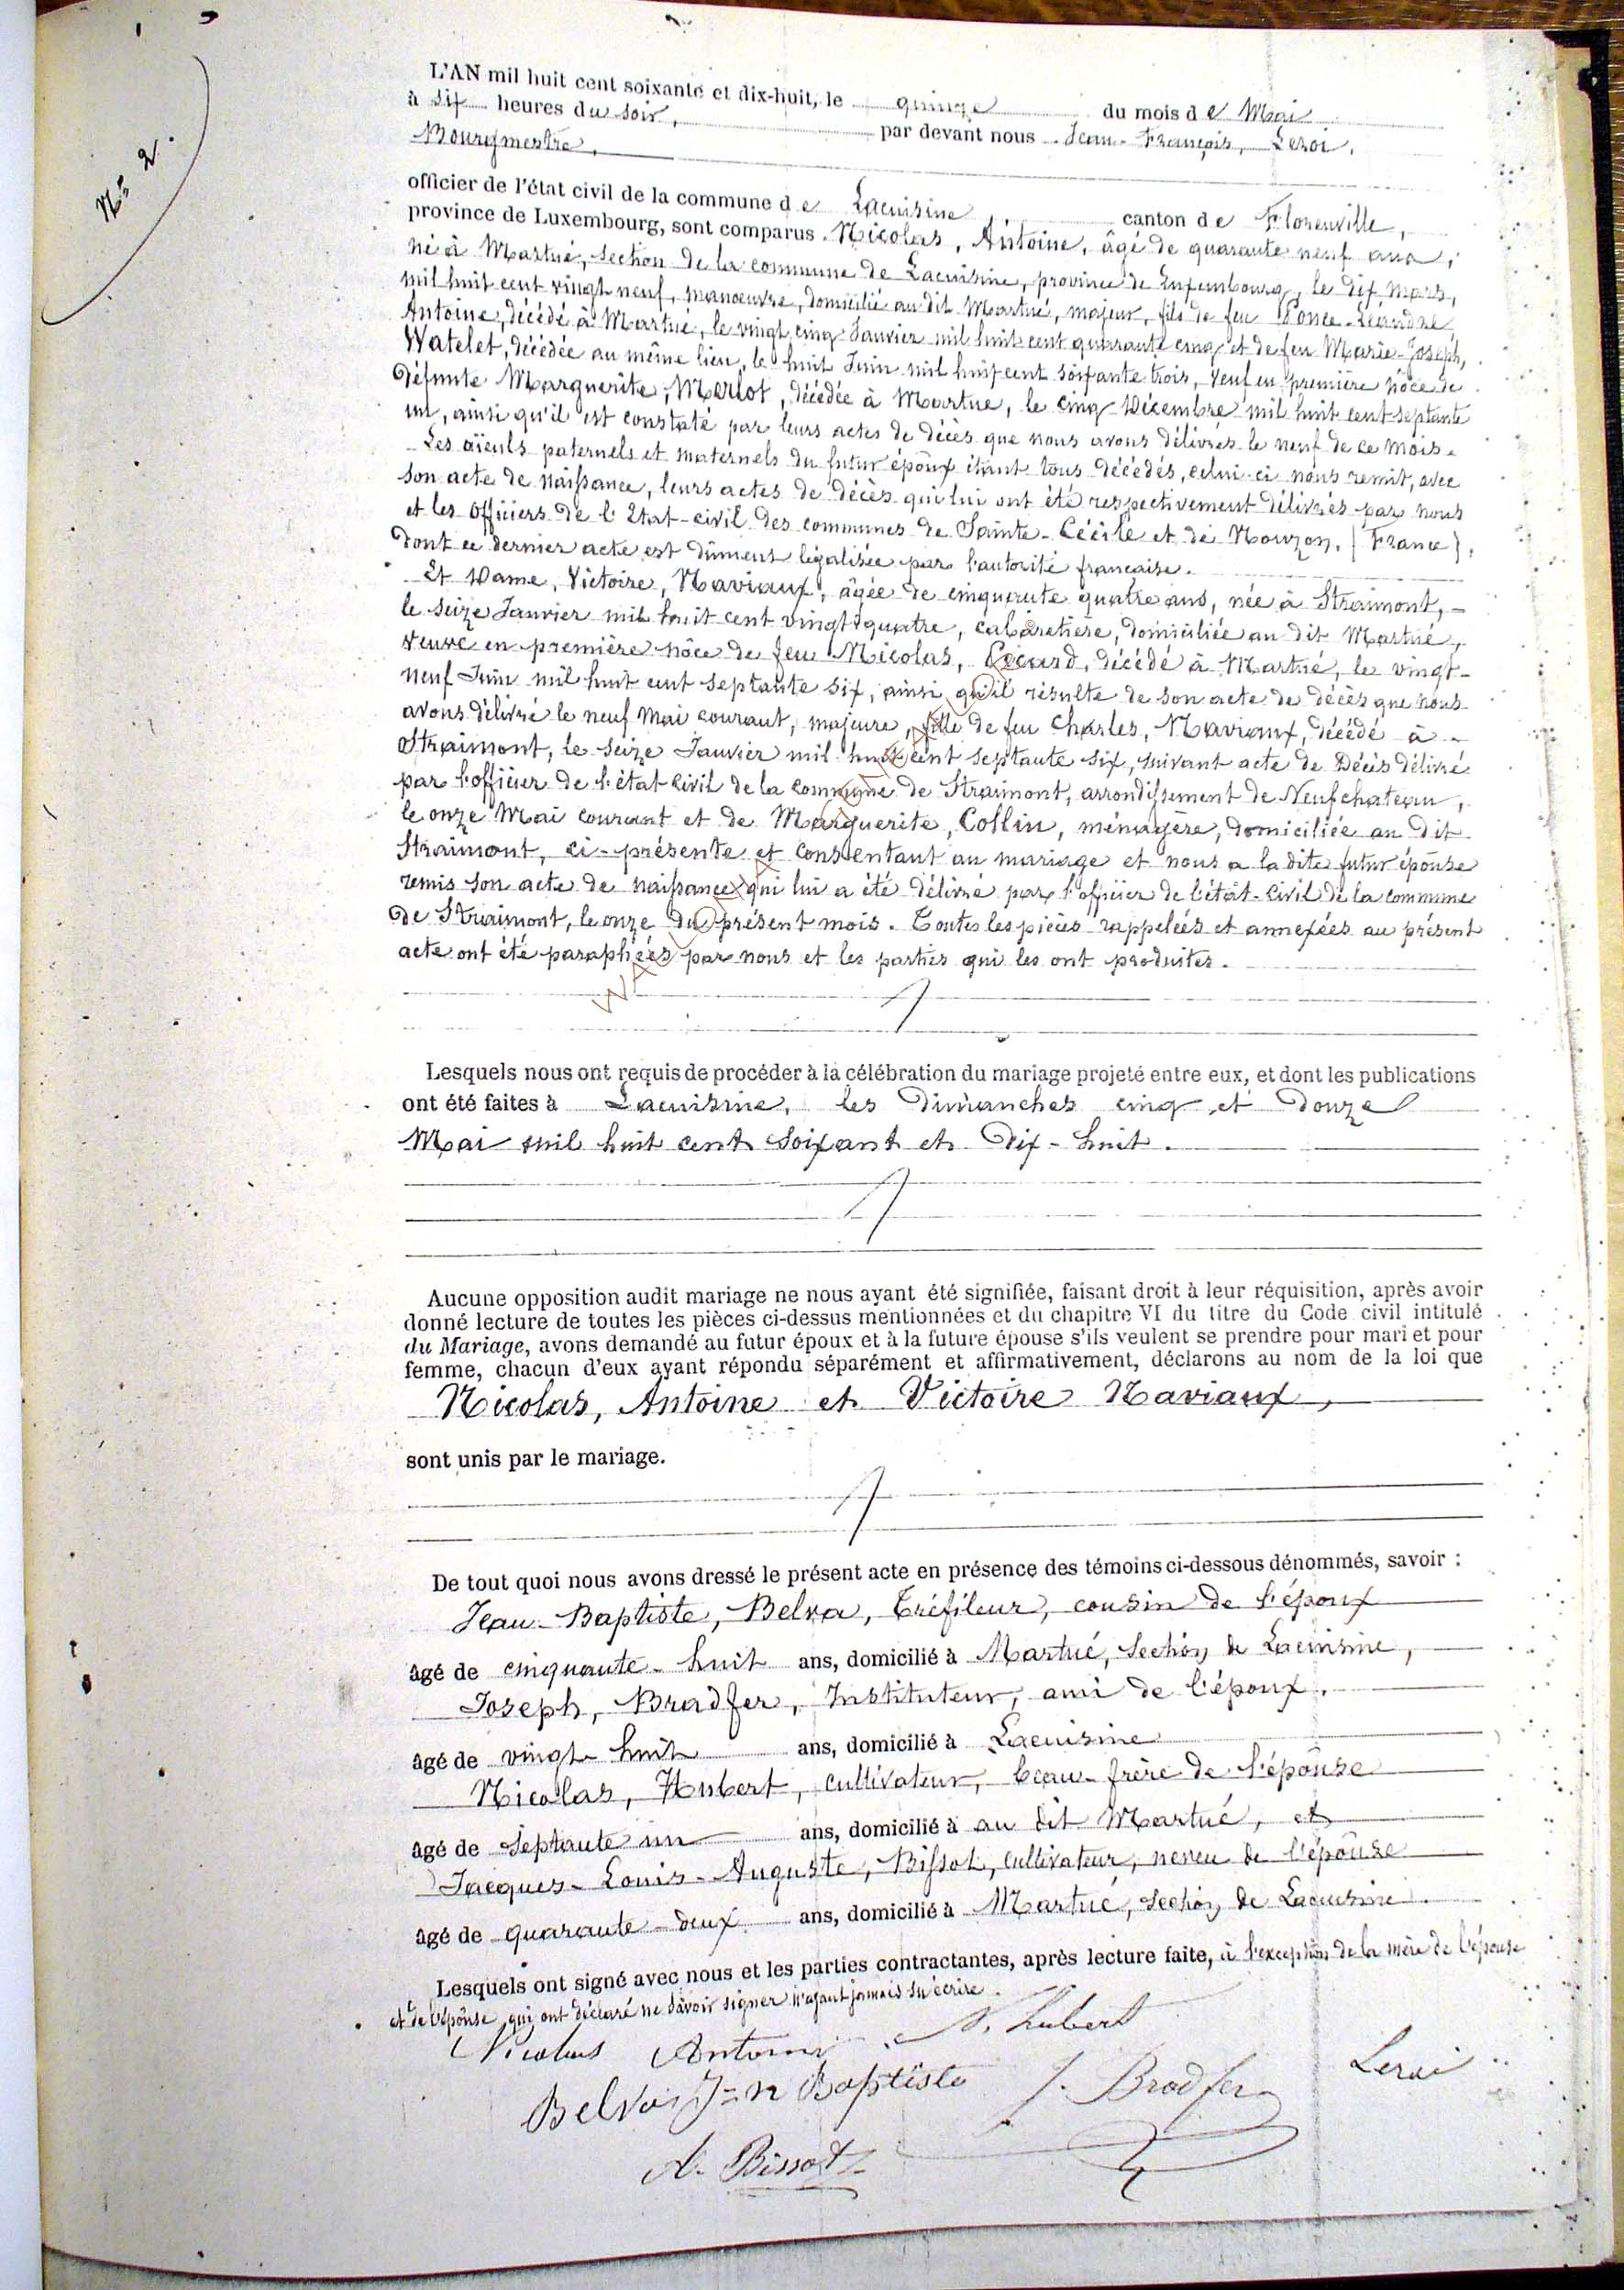 N° 2.
L'AN mil huit cent soixante et dix-huit, le quinze du mois de Mai
à six heures du soir, par devant nous Jean-François, Leroi,
Bourgmestre,
officier de l'état civil de la commune de Lacuisine, canton de Florenville,
province de Luxembourg, sont comparus Nicolas, Antoine, âgé de quarante neuf ans,
né à Martué, section de la commune de Lacuisine, province de Luxembourg, le dix Mars,
mil huit cent vingt neuf, manœuvre, domicilié au dit Martué, majeur, fils de feu Ponce-Léandre
Antoine, décédé à Martué, le vingt cinq Janvier mil huit cent quarante cinq et de feu Marie-Joseph,
Watelet, décédée au même lieu, le huit Juin mil huit cent soixante trois, veuf en première nôce de
défunte Marguerite, Merlot, décédée à Martué, le cinq Décembre mil huit cent septante
un, ainsi qu'il est constaté par leurs actes de décès que nous avons délivrés le neuf de ce mois.
Les aïeuls paternels et maternels du futur époux étant tous décédés, celui-ci nous remit, avec
son acte de naissance, leurs actes de décès qui lui ont été respectivement délivrés par nous
et les Officiers de l'Etat-civil des communes de Sainte-Cécile et de Nouzon, (France),
dont ce dernier acte est dûment légalisée par l'autorité française.
Et Dame, Victoire, Naviaux, âgée de cinquante quatre ans, née à Straimont,
le seize Janvier mil huit cent vingt quatre, cabaretière, domiciliée au dit Martué,
veuve en première nôce de feu Nicolas, décédé à Martué, le vingt-
neuf Juin mil huit cent septante six, ainsi qu'il résulte de son acte de décès que nous
avons délivré le neuf Mai courant, majeure, fille de feu Charles, Naviaux, décédé à
Straimont, le seize Janvier mil huit cent septante six, suivant acte de Décès délivré
par l'officier de l'état civil de la commune de Straimont, arrondissement de Neufchateau,
le onze Mai courant et de Marguerite, Collin, ménagère, domiciliée au dit
Straimont, ci-présente et consentant au mariage et nous a la dite futur épouse
remis son acte de naissance qui lui a été délivré par l'officier de l'état-civil de la commune
de Straimont, le onze du présent mois. Toutes les pièces rappelées et annexées au présent
acte ont été paraphées par nous et les parties qui les ont produites.
Lesquels nous ont requis de procéder à la célébration du mariage projeté entre eux, et dont les publications
ont été faites à Lacuisine, les Dimanches cinq et Douze
Mai mil huit cent soixant et Dix-huit.
Aucune opposition audit mariage ne nous ayant été signifiée, faisant droit à leur réquisition, après avoir
donné lecture de toutes les pièces ci-dessus mentionnées et du chapitre VI du titre du Code civil intitulé
du Mariage, avons demandé au futur époux et à la future épouse s'ils veulent se prendre pour mari et pour
femme, chacun d'eux ayant répondu séparément et affirmativement, déclarons au nom de la loi que
Nicolas, Antoine et Victoire Naviaux,
sont unis par le mariage.
De tout quoi nous avons dressé le présent acte en présence des témoins ci-dessous dénommés, savoir :
Jean-Baptiste, Belva, Tréfileur, cousin de l'époux
âgé de cinquante-huit ans, domicilié à Martué, section de Lacuisine,
Joseph, Bradfer, Instituteur, ami de l'époux,
âgé de vingt-huit ans, domicilié à Lacuisine
Nicolas, Hubert, cultivateur, beau-frère de l'épouse
âgé de septante un ans, domicilié à au dit Martué, et
Jacques-Louis-Auguste, Bissot, cultivateur, neveu de l'épouse
âgé de quarante-deux ans, domicilié à Martué, section de Lacuisine.
Lesquels ont signé avec nous et les parties contractantes, après lecture faite, à l'exception de la mère de l'épouse
et de l'épouse, qui ont déclaré ne savoir signer n'ayant jamais su écrire.
Nicolas Antoine N. Hubert
Belva Jn Baptiste J. Bradfer Leroi
A. Bissot